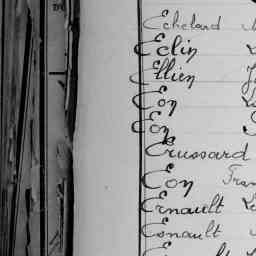 Echelard
Eclin
Ellien
Eon
Eon
Erussard
Eon Fran
Ernault
Esnault